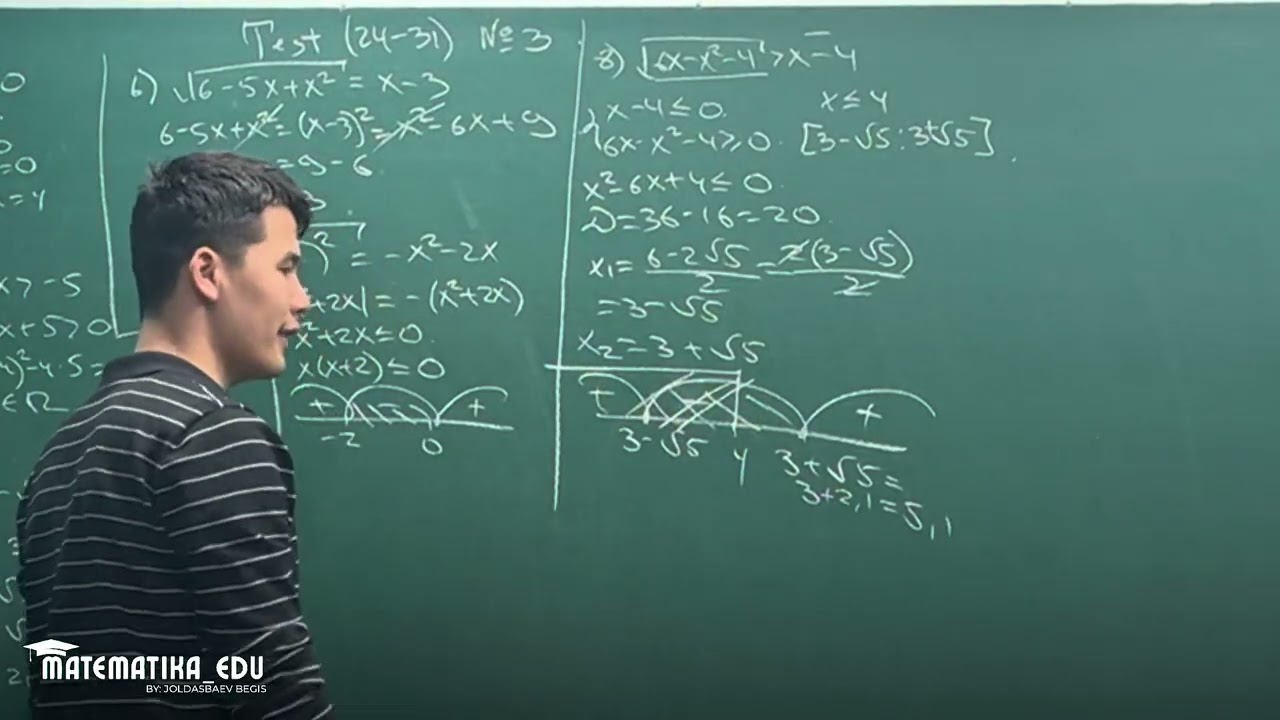 Test (24-31) №3
0
0
=0
=4
x>-5
x+5>0
)²-4·5=
∈R
6) √6-5x+x² = x-3
6-5x+x²=(x-3)²=x²-6x+9
=9-6
)² = -x²-2x
+2x|=-(x²+2x)
x²+2x≤0
x(x+2)≤0
+ - +
-2 0
8) √6x-x²-4>x-4
{x-4≤0. x≤4
6x-x²-4≥0. [3-√5:3+√5]
x²-6x+4≤0.
D=36-16=20.
x₁=6-2√5/2=2(3-√5)/2
=3-√5
x₂=3+√5
+ - +
3-√5 4 3+√5=
3+2,1=5,1
MATEMATIKA_EDU
BY: JOLDASBAEV BEGIS